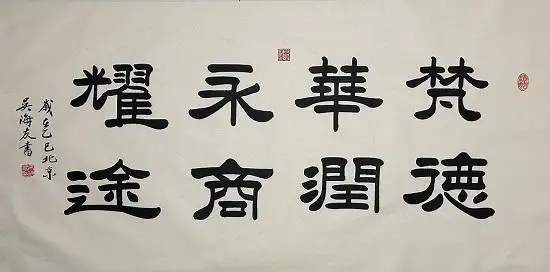 梵德
華潤
永商
耀途
歲在乙巳北京
吴海友書